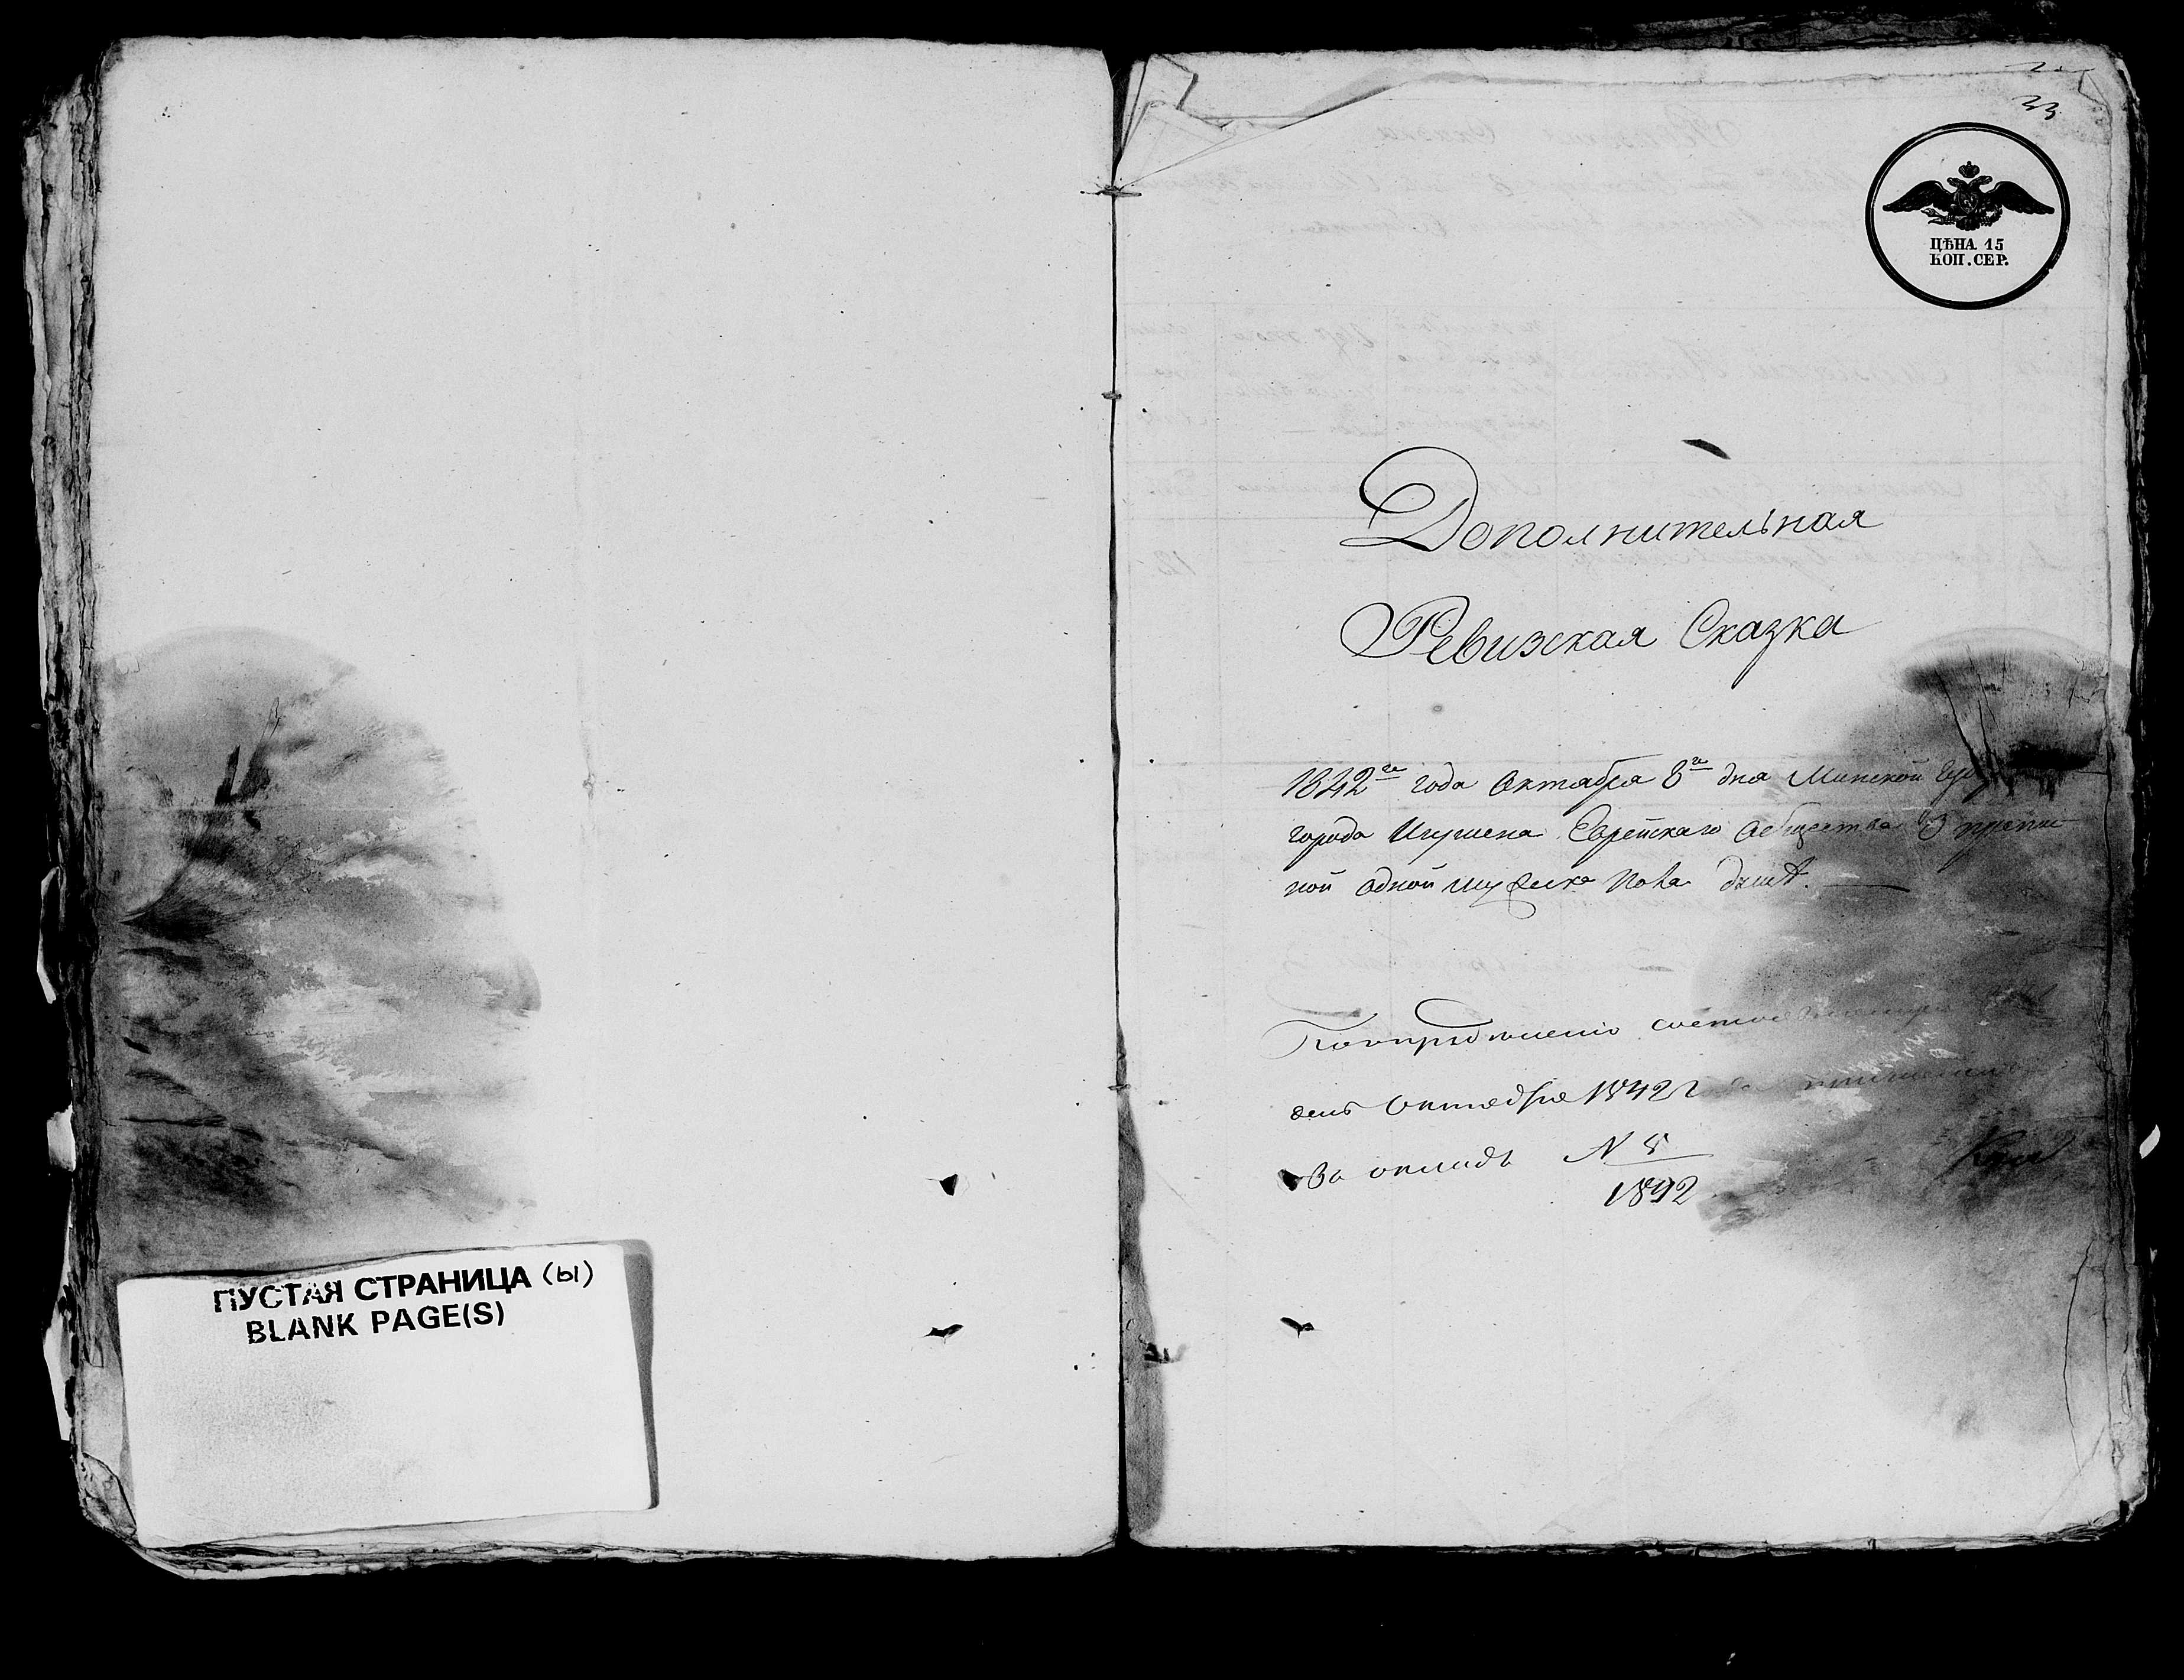 ПУСТАЯ СТРАНИЦА (ы)
BLANK PAGE(S)
33
ЦѢНА 15
КОП. СЕР.
Дополнительная
Ревизская Сказка
1842го года Октября 8го дня Минской
города Игумена Еврейскаго Общества О
ной одной мужеска пола душѣ.
день Октября 1842
въ окладъ N 8
1892